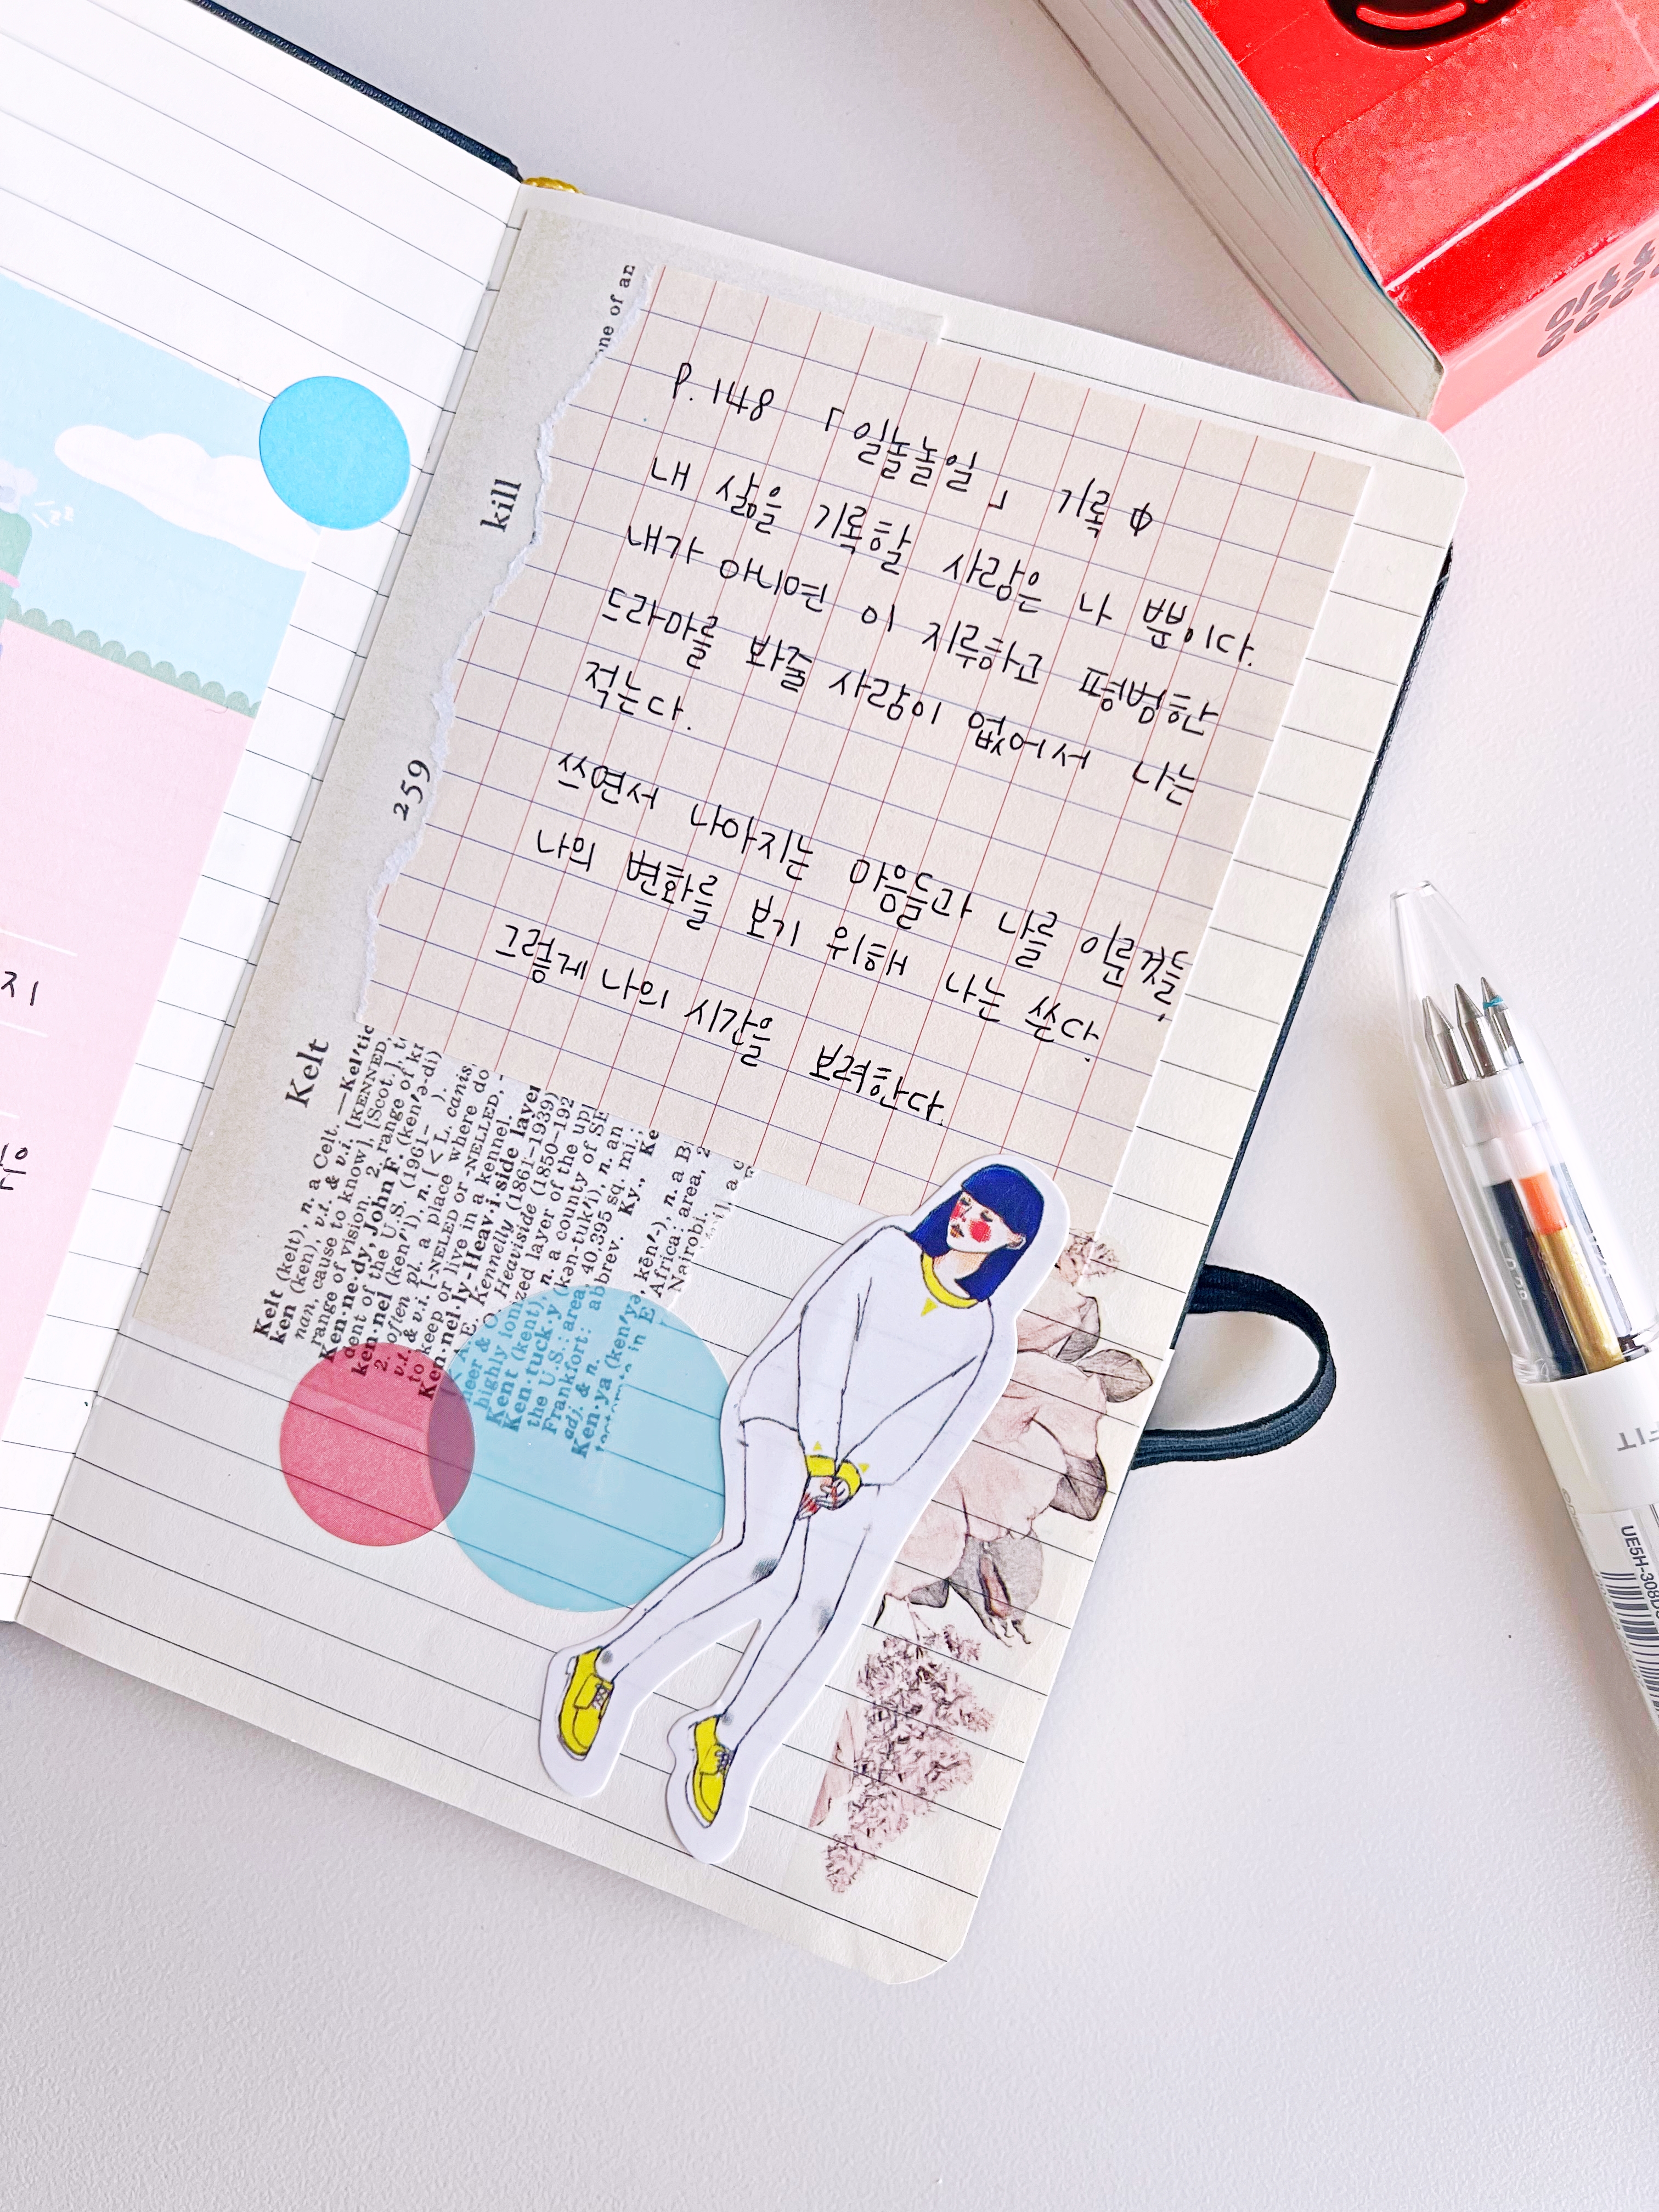 P. 148 「일놀놀일」 기록 中
내 삶을 기록할 사람은 나 뿐이다.
내가 아니면 이 지루하고 평범한
드라마를 봐줄 사람이 없어서 나는
적는다.
쓰면서 나아지는 마음들과 나를 이룬 것들,
나의 변화를 보기 위해 나는 쓴다.
그렇게 나의 시간을 보려한다.
one of an
kill
259
Kelt
Kelt (kelt), n. a Celt. —Kel′tic
ken (ken), v.t. & v.i. [KENNED,
nan, cause to know], [Scot.],
range of vision. 2. range of
Ken·ne·dy, John F. (ken′ə-di)
dent of the U.S. (1961- ).
ken·nel (ken′'l), n. [< L. canis,
2. often pl. a place where do
v.t. & v.i. [-NELED or -NELLED, -
to keep or live in a kennel.
Ken·nel·ly-Heav·i·side layer
A. E. Kennelly (1861–1939)
neer & O. Heaviside (1850–192
highly ionized layer of the up
Kent (kent), n. a county of SE
Ken·tuck·y (kən-tuk′i), n. an
the U.S.: area, 40,395 sq. mi.;
Frankfort: abbrev. Ky., Ke
adj. & n.
Ken·ya (ken′yə, kēn′-), n. a B
in E Africa: area, 2
Nairobi.
지
UE5H-308
FIT